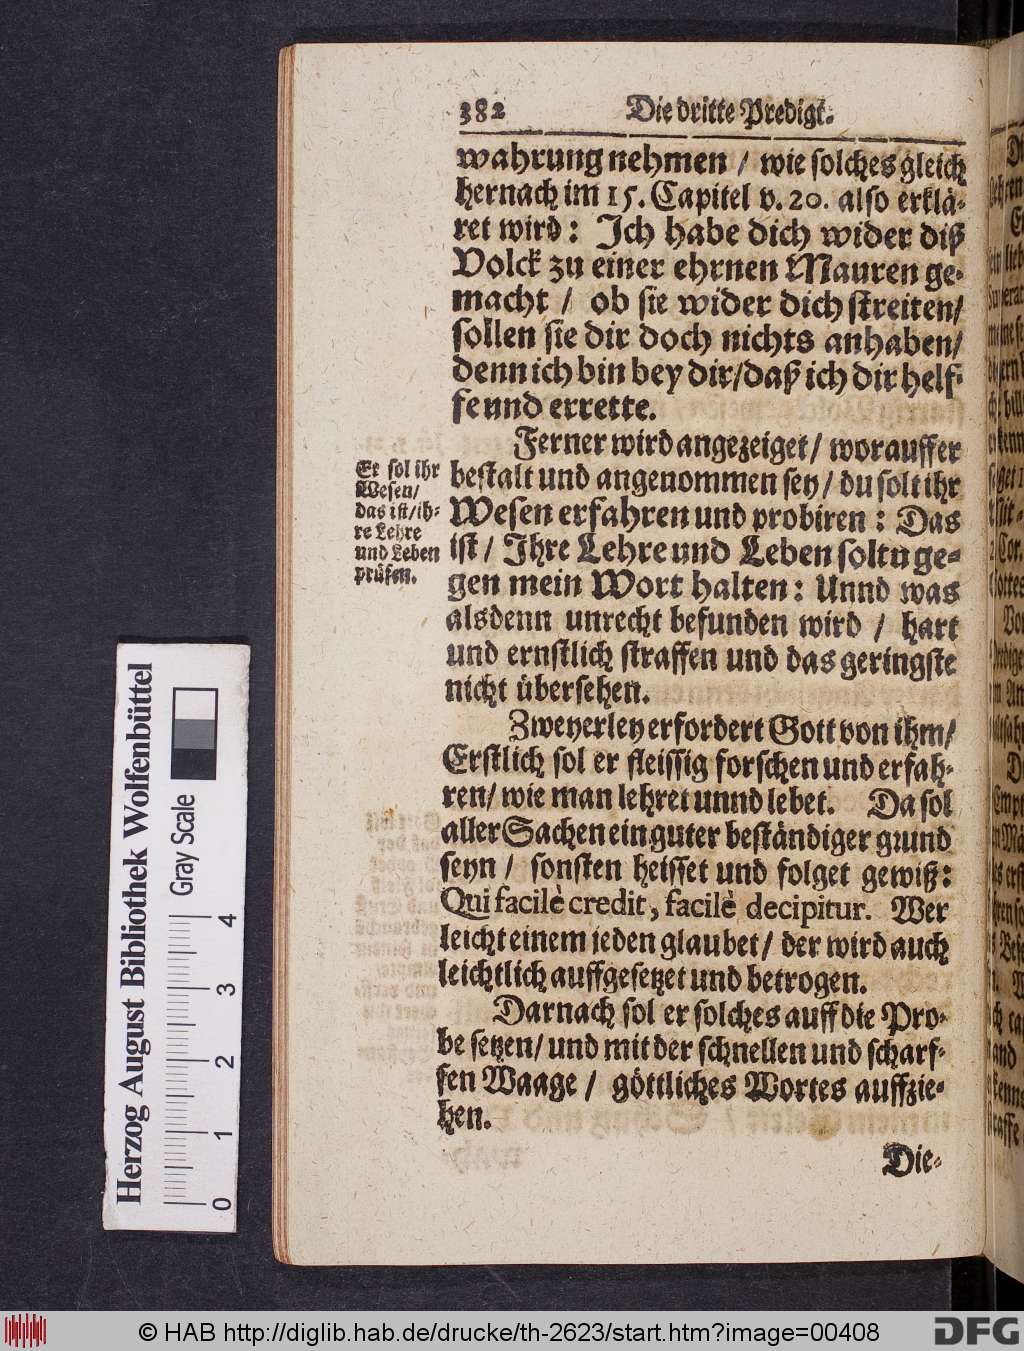 382 Die dritte Predigt.
wahrung nehmen / wie solches gleich
hernach im 15. Capitel v. 20. also erklä-
ret wird: Ich habe dich wider diß
Volck zu einer ehrnen Mauren ge-
macht / ob sie wider dich streiten/
sollen sie dir doch nichts anhaben/
denn ich bin bey dir/daß ich dir helf-
fe und errette.
Ferner wird angezeiget/ worauff er
bestalt und angenommen sey/ du solt ihr
Wesen erfahren und probiren: Das
ist/ Ihre Lehre und Leben soltu ge-
gen mein Wort halten: Unnd was
alsdenn unrecht befunden wird / hart
und ernstlich straffen und das geringste
nicht übersehen.
Er sol ihr
Wesen/
das ist/ih-
re Lehre
und Leben
prüfen.
Zweyerley erfordert Gott von ihm/
Erstlich sol er fleissig forschen und erfah-
ren/ wie man lehret unnd lebet. Da sol
aller Sachen ein guter beständiger grund
seyn / sonsten heisset und folget gewiß:
Qui facilè credit, facilè decipitur. Wer
leicht einem jeden glaubet/ der wird auch
leichtlich auffgesetzet und betrogen.
Darnach sol er solches auff die Pro-
be setzen/ und mit der schnellen und scharf-
fen Waage / göttliches Wortes auffzie-
hen.
Die-
Herzog August Bibliothek Wolfenbüttel
Gray Scale
0 1 2 3 4
© HAB http://diglib.hab.de/drucke/th-2623/start.htm?image=00408
DFG